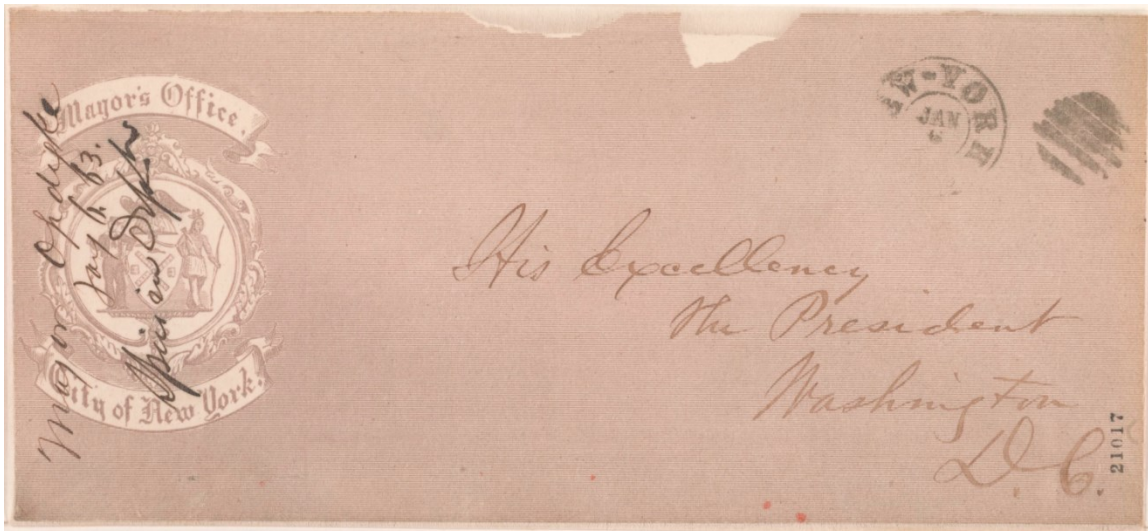 Mayor's Office.
City of New York.
Mayor Opdyke
Jany 63.
NEW-YORK
JAN
6
His Excellency
the President
Washington
D. C.
21017